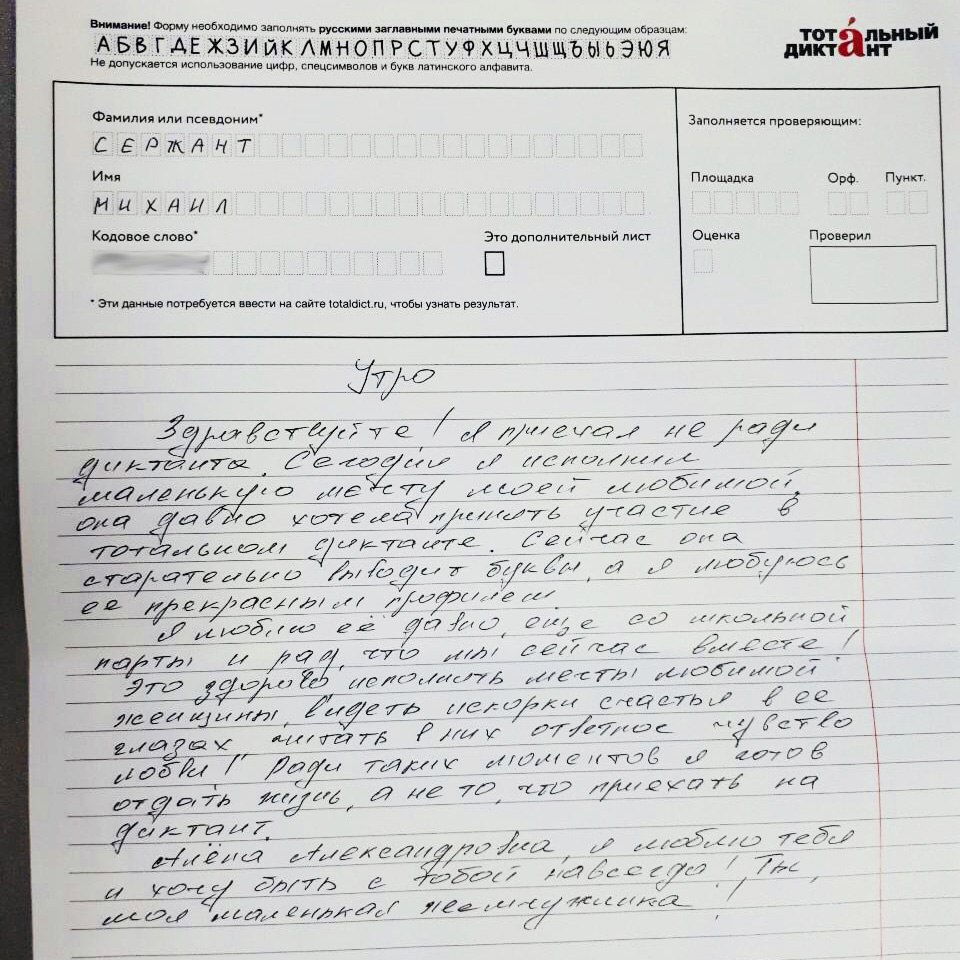 Внимание! Форму необходимо заполнять русскими заглавными печатными буквами по следующим образцам:
АБВГДЕЖЗИЙКЛМНОПРСТУФХЦЧШЩЪЫЬЭЮЯ
Не допускается использование цифр, спецсимволов и букв латинского алфавита.
тота́льный
дикта́нт
Фамилия или псевдоним*
СЕРЖАНТ
Имя
МИХАИЛ
Кодовое слово*
Это дополнительный лист
* Эти данные потребуется ввести на сайте totaldict.ru, чтобы узнать результат.
Заполняется проверяющим:
Площадка
Орф.
Пункт.
Оценка
Проверил
Утро
Здравствуйте! Я приехал не ради
диктанта. Сегодня я исполнил
маленькую мечту моей любимой,
она давно хотела принять участие в
тотальном диктанте. Сейчас она
старательно выводит буквы, а я любуюсь
ее прекрасным профилем
Я люблю её давно, еще со школьной
парты и рад, что мы сейчас вместе!
Это здорово исполнять мечты любимой
женщины, видеть искорки счастья в ее
глазах, читать в них ответное чувство
любви! Ради таких моментов я готов
отдать жизнь, а не то, что приехать на
диктант.
Алёна Александровна, я люблю тебя
и хочу быть с тобой навсегда! Ты,
моя маленькая жемчужинка!